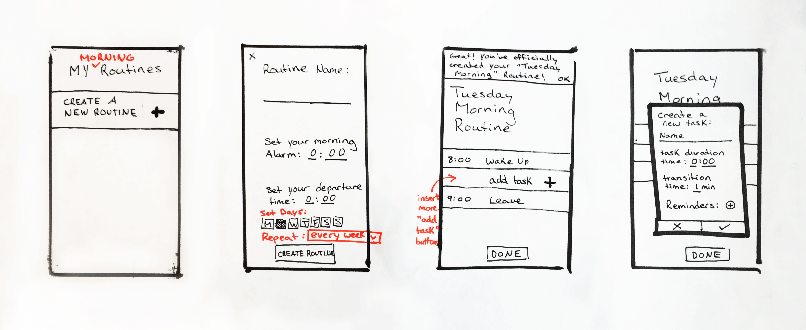 MORNING
MY Routines
CREATE A
NEW ROUTINE +
X
Routine Name:
Set your morning
Alarm: 0:00
Set your departure
time: 0:00
Set Days:
M T W T F S S
Repeat: every week
CREATE ROUTINE
Great! you've officially
created your "Tuesday
Morning" Routine!
OK
Tuesday
Morning
Routine
8:00 Wake Up
add task +
9:00 Leave
insert
more
"add
task"
button
DONE
Tuesday
Morning
Create a
new task:
Name
task duration
time: 0:00
transition
time: 1 min
Reminders: +
X ✓
DONE